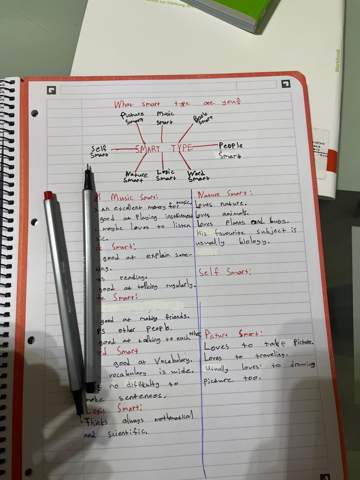 What smart type are you?
Picture
Smart
Music
Smart
Smart
Self
Smart
SMART TYPE
People
Smart
Nature
Smart
Logic
Smart
Word
Smart
Music Smart:
an excellent memory for music.
good at Playing
maybe loves to listen
sic.
Smart:
good at explain some-
reading.
good at talking regularly.
Smart:
good at making friends.
other people.
good at talking to each other
Smart
good at Vocabulary.
vocabulary is wide.
no difficulty to
make sentences.
Logic Smart:
Thinks always mathematical
and scientific.
Nature Smart:
Loves nature.
Loves animals.
Loves Plants and bugs.
His favourite subject is
usually biology.
Self Smart:
Picture Smart:
Loves to take Picture.
Loves to traveling.
Usually loves to drawing
picture too.